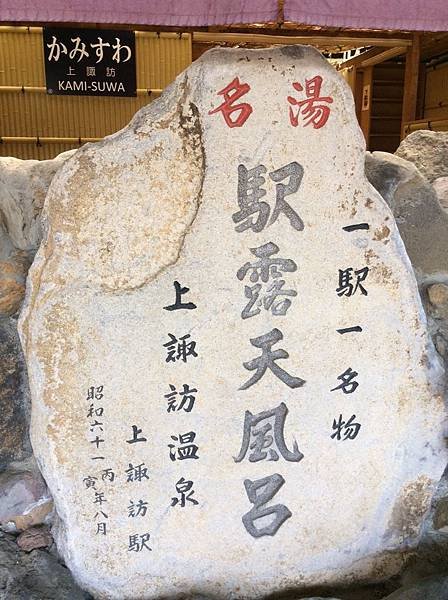 かみすわ
上諏訪
KAMI-SUWA
名湯
一駅一名物
駅露天風呂
上諏訪温泉
上諏訪駅
昭和六十一丙寅年八月